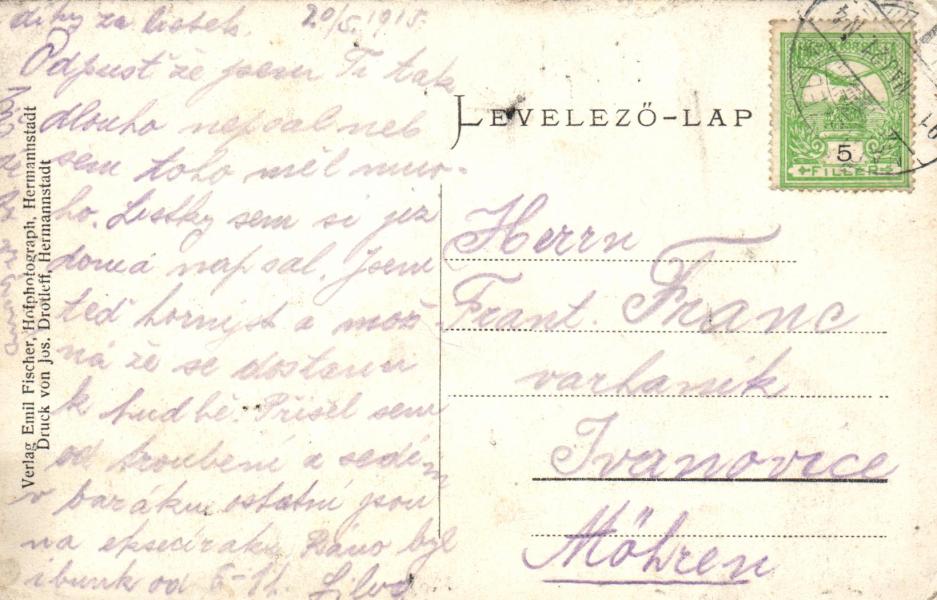 díky za lístek. 20/5. 1915.
Odpusť že jsem Ti tak
dlouho nepsal neb
sem toho měl mno-
ho. Lístky sem si již
domá napsal. Jsem
teď hornyst a mož
ná že se dostanu
k hudbě. Přišel sem
od troubení a sedím
v baráku ostatní jsou
na Ráno byl
od 6-11.
Verlag Emil Fischer, Hofphotograph, Hermannstadt
Druck von Jos. Drotleff, Hermannstadt
LEVELEZŐ-LAP
5
FILLÉR
Herrn
Frant. Franc
varhaník
Ivanovice
Möhren